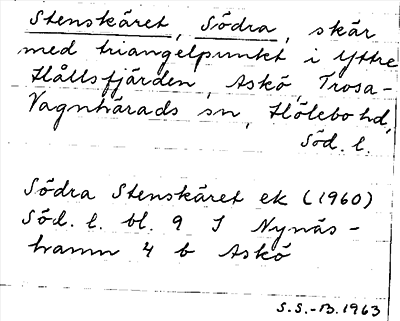 Stenskäret, Södra, skär
med triangelpunkt i Yttre
Hållsfjärden, Askö, Trosa-
Vagnhärads sn, Hölebo hd,
Söd. l.
Södra Stenskäret ek (1960)
Söd. l. bl. 9 I Nynäs-
hamn 4 b Askö
S.S.-B. 1963